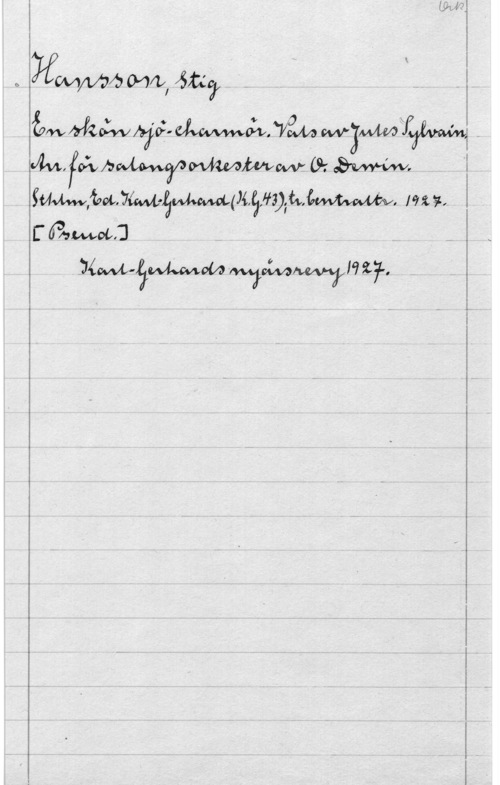 Ork.
Hansson, Stig
En skön sjö-charmör. Vals av Jules Sylvain,
Arr. för salongsorkester av O. Dewin.
Sthlm, Ed. Karl-Gerhard (K.G. 43); tr. Centraltr. 1927.
[Pseud.]
Karl-Gerhards nyårsrevy 1927.